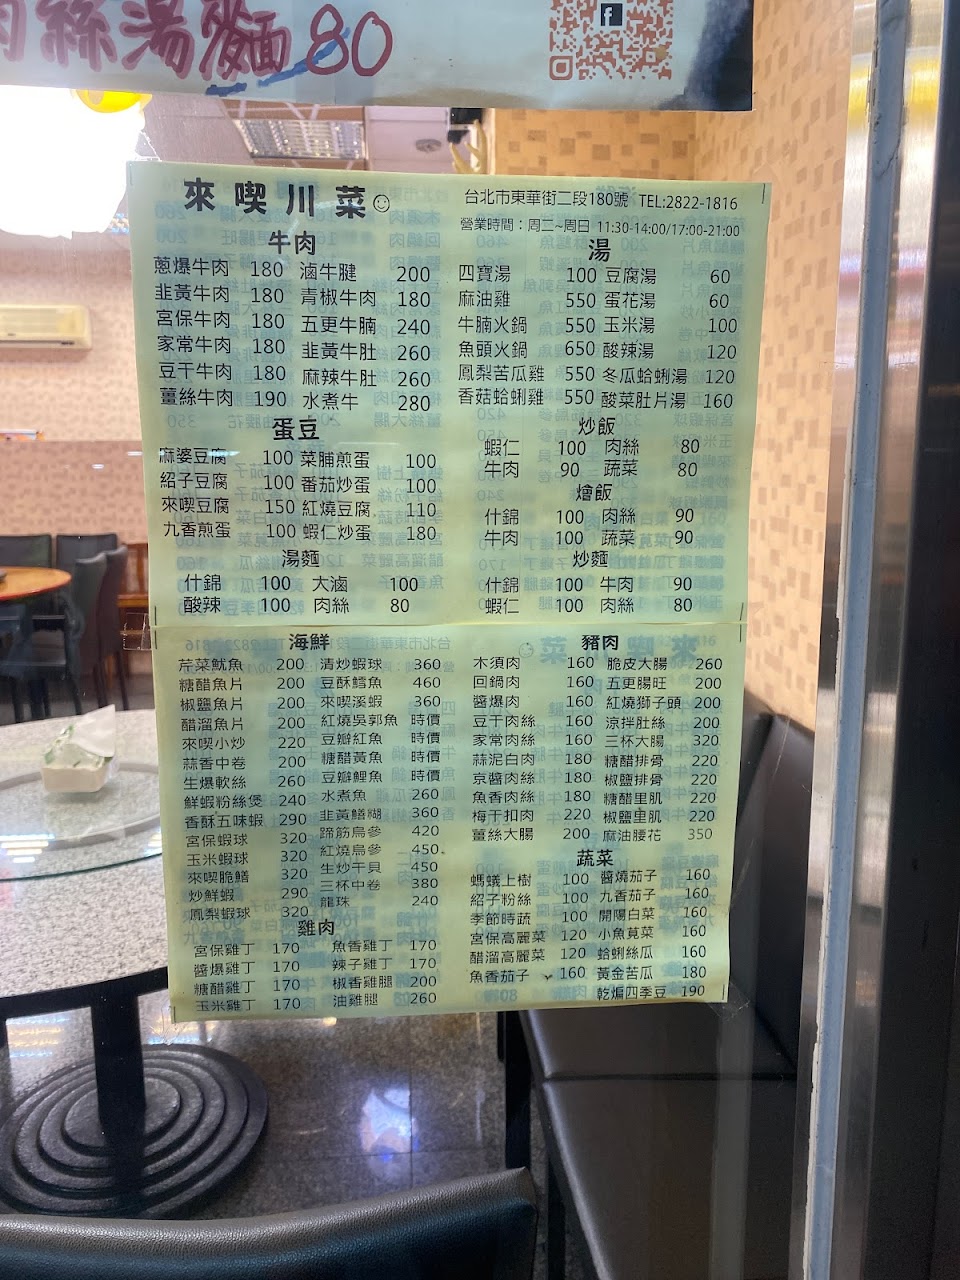 肉絲湯麵 80
來喫川菜
台北市東華街二段180號 TEL:2822-1816
營業時間：周二~周日 11:30-14:00/17:00-21:00
牛肉
蔥爆牛肉 180 滷牛腱 200
韭黃牛肉 180 青椒牛肉 180
宮保牛肉 180 五更牛腩 240
家常牛肉 180 韭黃牛肚 260
豆干牛肉 180 麻辣牛肚 260
薑絲牛肉 190 水煮牛 280
蛋豆
麻婆豆腐 100 菜脯煎蛋 100
紹子豆腐 100 番茄炒蛋 100
來喫豆腐 150 紅燒豆腐 110
九香煎蛋 100 蝦仁炒蛋 180
湯麵
什錦 100 大滷 100
酸辣 100 肉絲 80
湯
四寶湯 100 豆腐湯 60
麻油雞 550 蛋花湯 60
牛腩火鍋 550 玉米湯 100
魚頭火鍋 650 酸辣湯 120
鳳梨苦瓜雞 550 冬瓜蛤蜊湯 120
香菇蛤蜊雞 550 酸菜肚片湯 160
炒飯
蝦仁 100 肉絲 80
牛肉 90 蔬菜 80
燴飯
什錦 100 肉絲 90
牛肉 100 蔬菜 90
炒麵
什錦 100 牛肉 90
蝦仁 100 肉絲 80
海鮮
芹菜魷魚 200 清炒蝦球 360
糖醋魚片 200 豆酥鱈魚 460
椒鹽魚片 200 來喫溪蝦 360
醋溜魚片 200 紅燒吳郭魚 時價
來喫小炒 220 豆瓣紅魚 時價
蒜香中卷 200 糖醋黃魚 時價
生爆軟絲 260 豆瓣鯉魚 時價
鮮蝦粉絲煲 240 水煮魚 260
香酥五味蝦 290 韭黃鱔糊 360
宮保蝦球 320 蹄筋烏參 420
玉米蝦球 320 紅燒烏參 450
來喫脆鱔 320 生炒干貝 450
炒鮮蝦 290 三杯中卷 380
鳳梨蝦球 320 龍珠 240
雞肉
宮保雞丁 170 魚香雞丁 170
醬爆雞丁 170 辣子雞丁 170
糖醋雞丁 170 椒香雞腿 200
玉米雞丁 170 油雞腿 260
豬肉
木須肉 160 脆皮大腸 260
回鍋肉 160 五更腸旺 200
醬爆肉 160 紅燒獅子頭 200
豆干肉絲 160 涼拌肚絲 200
家常肉絲 160 三杯大腸 320
蒜泥白肉 180 糖醋排骨 220
京醬肉絲 180 椒鹽排骨 220
魚香肉絲 180 糖醋里肌 220
梅干扣肉 220 椒鹽里肌 220
薑絲大腸 200 麻油腰花 350
蔬菜
螞蟻上樹 100 醬燒茄子 160
紹子粉絲 100 九香茄子 160
季節時蔬 100 開陽白菜 160
宮保高麗菜 120 小魚莧菜 160
醋溜高麗菜 120 蛤蜊絲瓜 160
魚香茄子 160 黃金苦瓜 180
乾煸四季豆 190